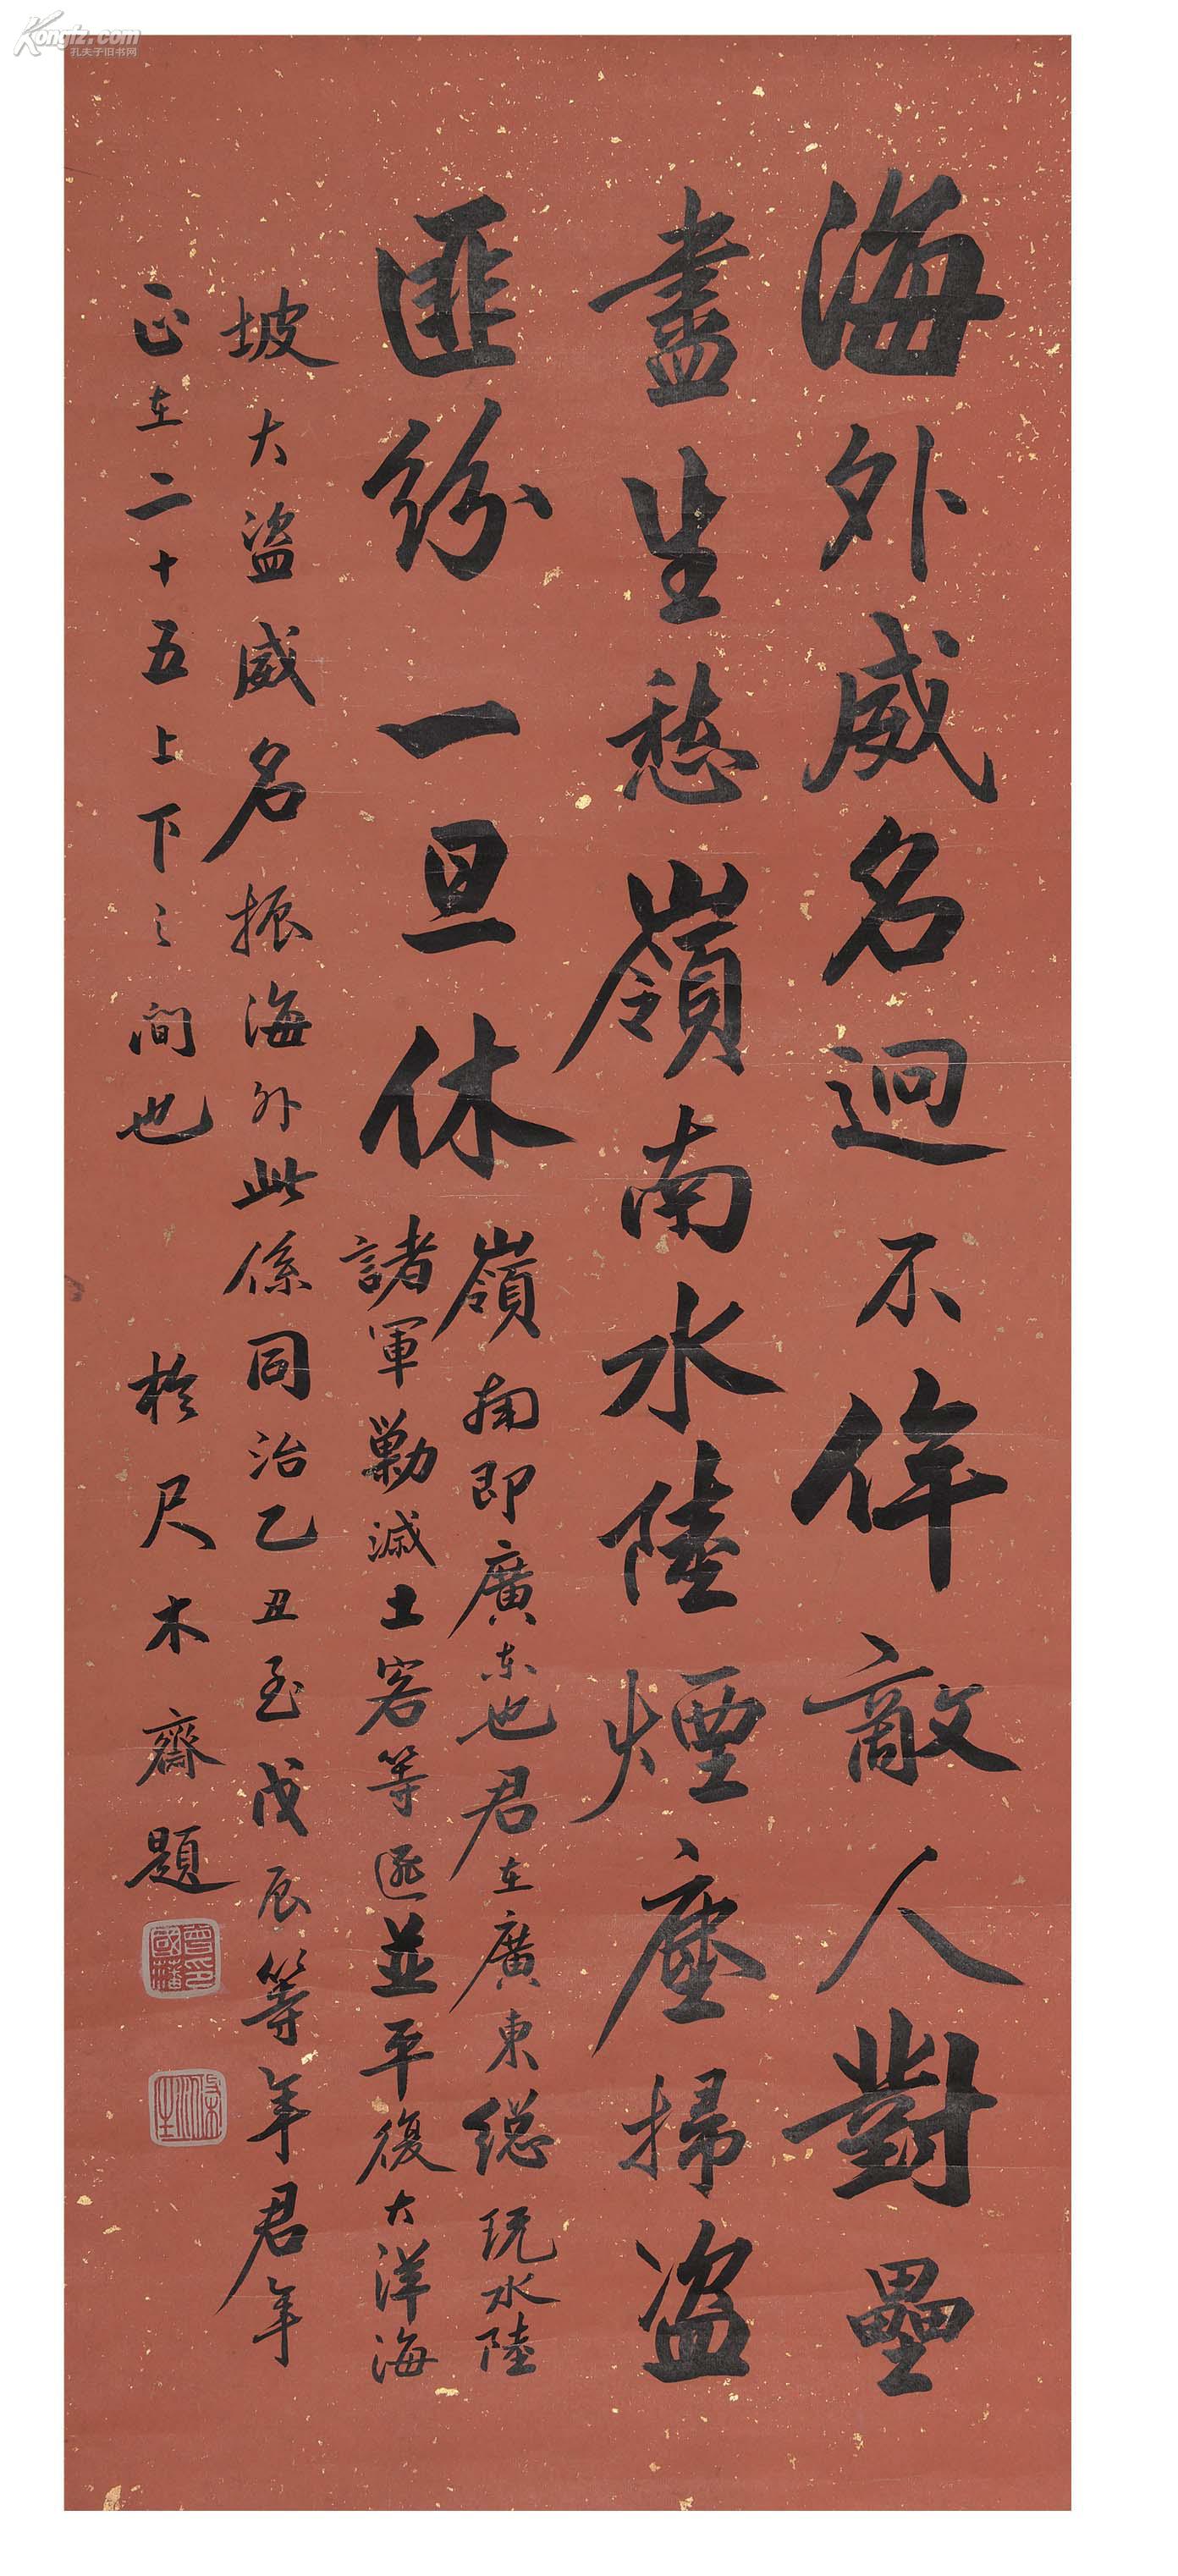 海外威名迥不侔敵人對壘
盡生愁嶺南水陸煙塵掃盜
匪紛一旦休
嶺南即廣東也君在廣東總玩水陸
諸軍勦滅土客等匪並平復大洋海
坡大盜威名振海外此係同治乙丑至戊辰等年君年
正在二十五上下之間也
於尺木齋題
曾國藩印
滌生
Kongfz.com
孔夫子旧书网